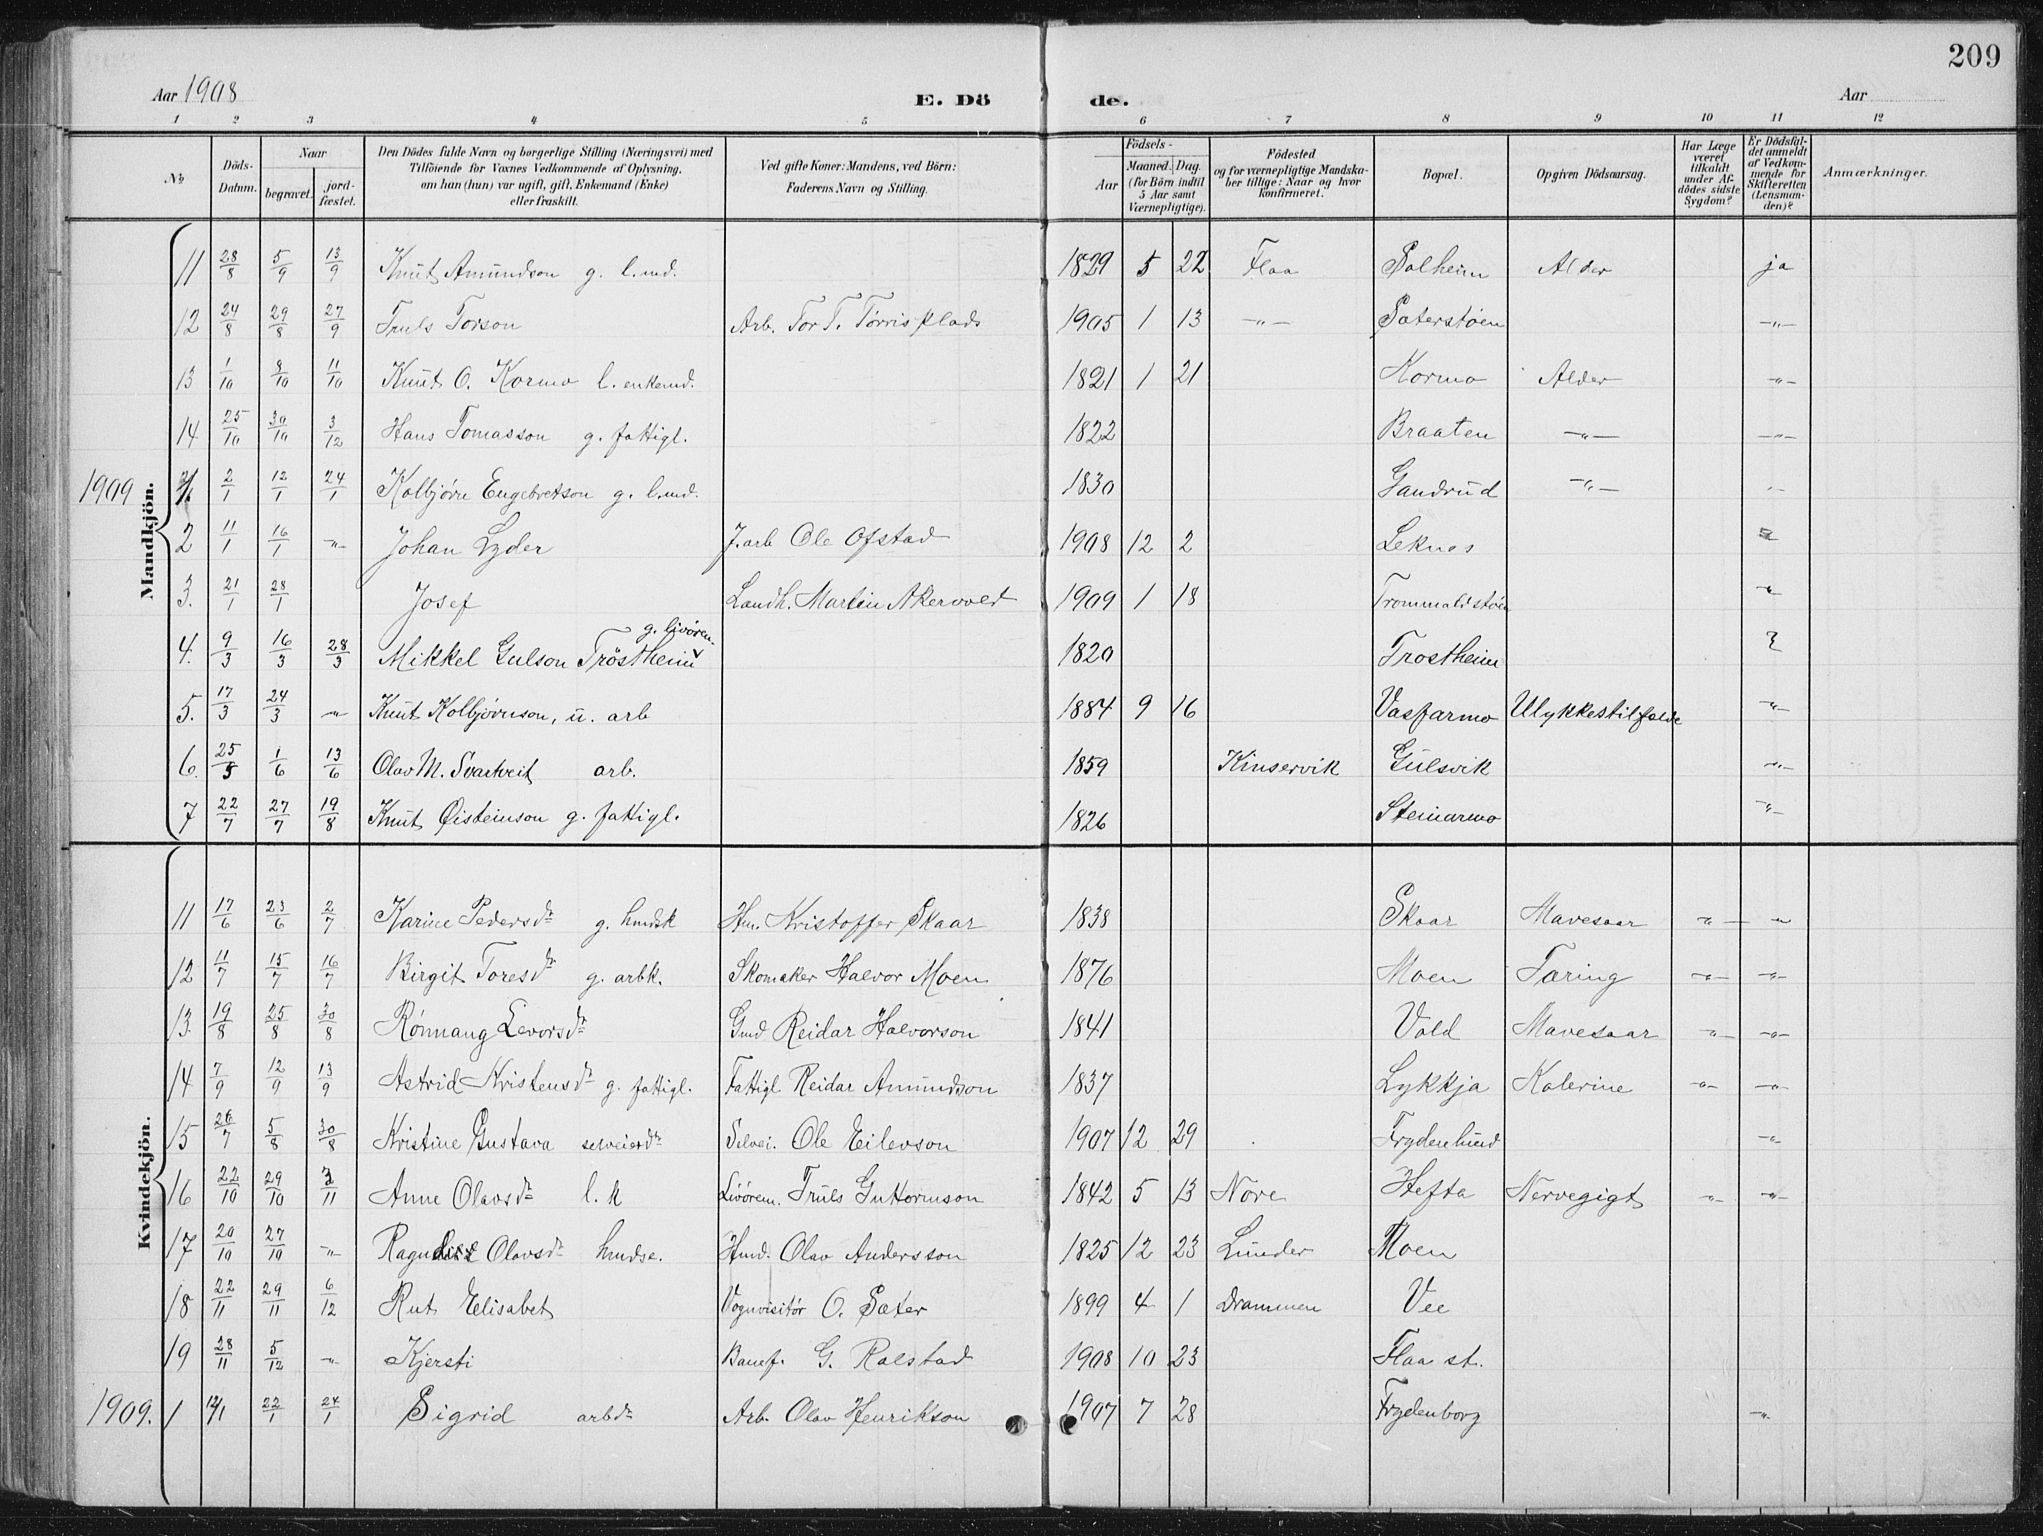 209
Aar 1908 E. Dö de. Aar
1 2 3 4 5 6 7 8 9 10 11 12
№ Döds-Datum. Naar begravet. jord-fæstet. Den Dödes fulde Navn og borgerlige Stilling (Næringsvei) med Tilföiende for Voxnes Vedkommende af Oplysning, om han (hun) var ugift, gift, Enkemand (Enke) eller fraskilt. Ved gifte Koner: Mandens, ved Börn: Faderens Navn og Stilling. Födsels- Aar Maaned. Dag. (for Börn indtil 5 Aar samt Værnepligtige). Födested og for værnepligtige Mandskaber tillige: Naar og hvor konfirmeret. Bopæl. Opgiven Dödsaarsag. Har Læge været tilkaldt under Afdödes sidste Sygdom? Er Dödsfaldet anmeldt af Vedkommende for Skifteretten (Lensmanden)? Anmærkninger.
Mandkjön.
11 28/8 5/9 13/9 Knut Amundson g. l.md. 1829 5 22 Flaa Solheim Alder ja
12 24/8 29/8 27/9 Truls Torson Arb. Tor T. Tørrisplads 1905 1 13 -„- Sæterstøen -„-
13 1/10 9/10 11/10 Knut O. Kormo l. enkemd. 1821 1 21 Kormo Alder -„-
14 25/10 30/10 3/12 Hans Tomasson g. fattigl. 1822 Braaten -„- -„-
1909 1 2/1 12/1 24/1 Kolbjørn Engebretson g. l.md. 1830 Gandrud -„- -„-
2 11/1 16/1 -„- Johan Lyder J.arb Ole Ofstad 1908 12 2 Leknes
3. 21/1 28/1 Josef Landh. Martin Akervold 1909 1 18 Trommaldstøen -„-
4. 9/3 16/3 28/3 Mikkel Gulson Tröstheim g. livøren. 1820 Trostheim
5. 17/3 24/3 -„- Knut Kolbjørnson, u. arb 1884 9 16 Vasfarmo Ulykkestilfælde -„-
6. 25/5 1/6 13/6 Olav M. Svartveit arb. 1859 Kinservik Gulsvik -„-
7 22/7 27/7 19/8 Knut Øisteinson g. fattigl. 1826 Steinarmo -„-
Kvindekjön.
11 17/6 23/6 2/7 Karine Pedersdr g. hmdsk Hm. Kristoffer Skaar 1838 Skaar Mavesaar -„- -„-
12 11/7 15/7 16/7 Birgit Toresdr g. arbk. Skomaker Halvor Moen 1876 Moen Tæring -„- -„-
13 19/8 25/8 30/8 Rønnaug Levorsdr Gmd Reidar Halvorson 1841 Vold Mavesaar -„- -„-
14 7/9 12/9 13/9 Astrid Kristensdr g. fattigl. Fattigl Reidar Amundson 1837 Lykkja Kolerine -„- -„-
15 26/7 5/8 30/8 Kristine Gustava selveierdr Selvei. Ole Eilevson 1907 12 29 Frydenlund -„-
16 22/10 29/10 3/11 Anne Olavsdr l. k Livören. Truls Guttormson 1842 5 13 Nore Hefta Nervegigt -„- -„-
17 20/10 27/10 -„- Ragnhild Olavsdr hmdse. Hmd. Olav Andersson 1825 12 23 Lunder Moen
18 22/11 29/11 6/12 Rut Elisabet Vognvisitør O. Sæter 1899 4 1 Drammen Vee
19 28/11 5/12 -„- Kjersti Banef. G. Rolstad 1908 10 23 Flaa st.
1909. 1 22/1 24/1 Sigrid arbdr Arb. Olav Henrikson 1907 7 28 Frydenborg -„-